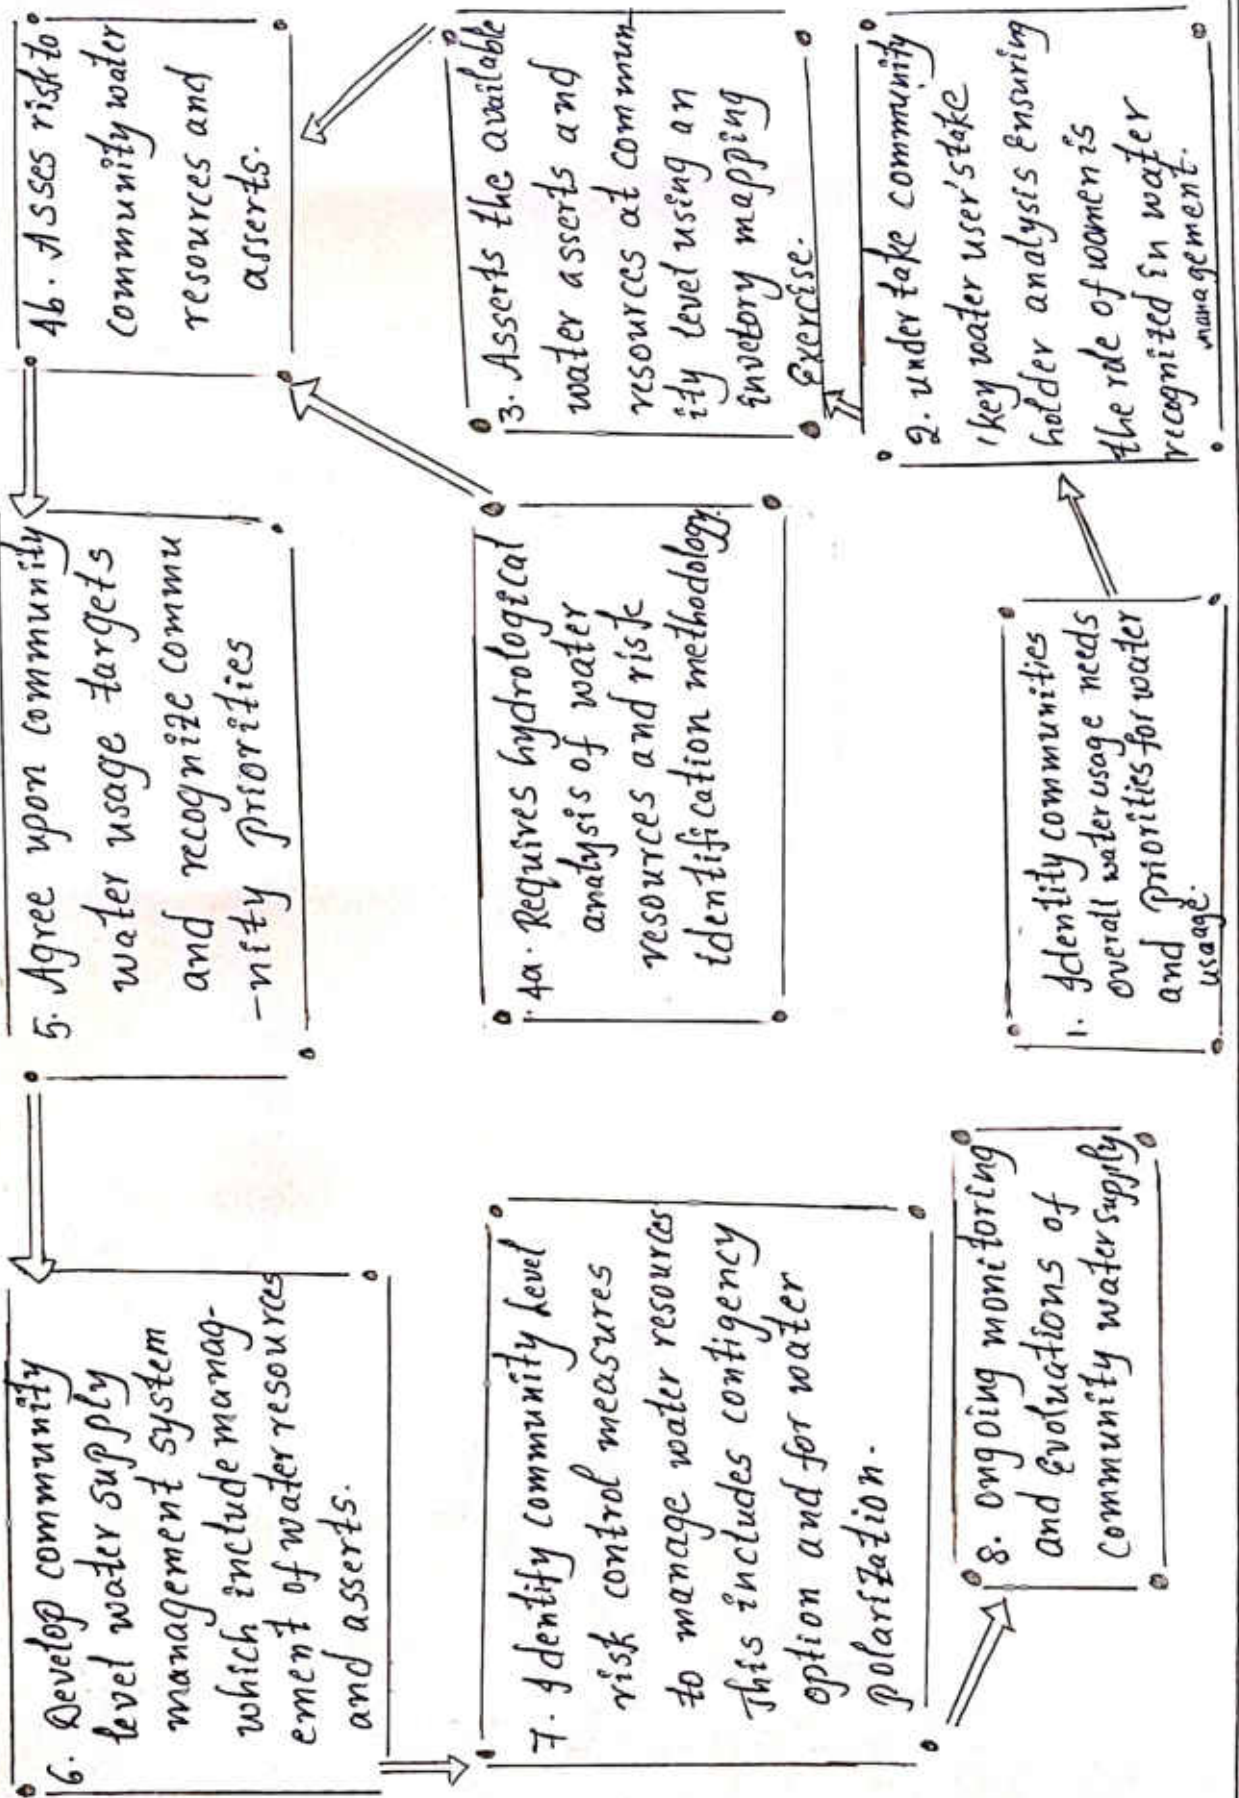 1. Identity communities
overall water usage needs
and priorities for water
usage.
2. under take community
key water user's stake
holder analysis ensuring
the role of women is
recognized in water
management.
3. Asserts the available
water asserts and
resources at commun
ity level using an
invetory mapping
Exercise.
4a. Requires hydrological
analysis of water
resources and risk
identification methodology.
4b. Asses risk to
community water
resources and
asserts.
5. Agree upon community
water usage targets
and recognize commu
-nity priorities
6. Develop community
level water supply
management system
which include manag-
ement of water resources
and asserts.
7. Identify community level
risk control measures
to manage water resources
This includes contigency
option and for water
polarization.
8. ongoing monitoring
and Evoluations of
community water supply